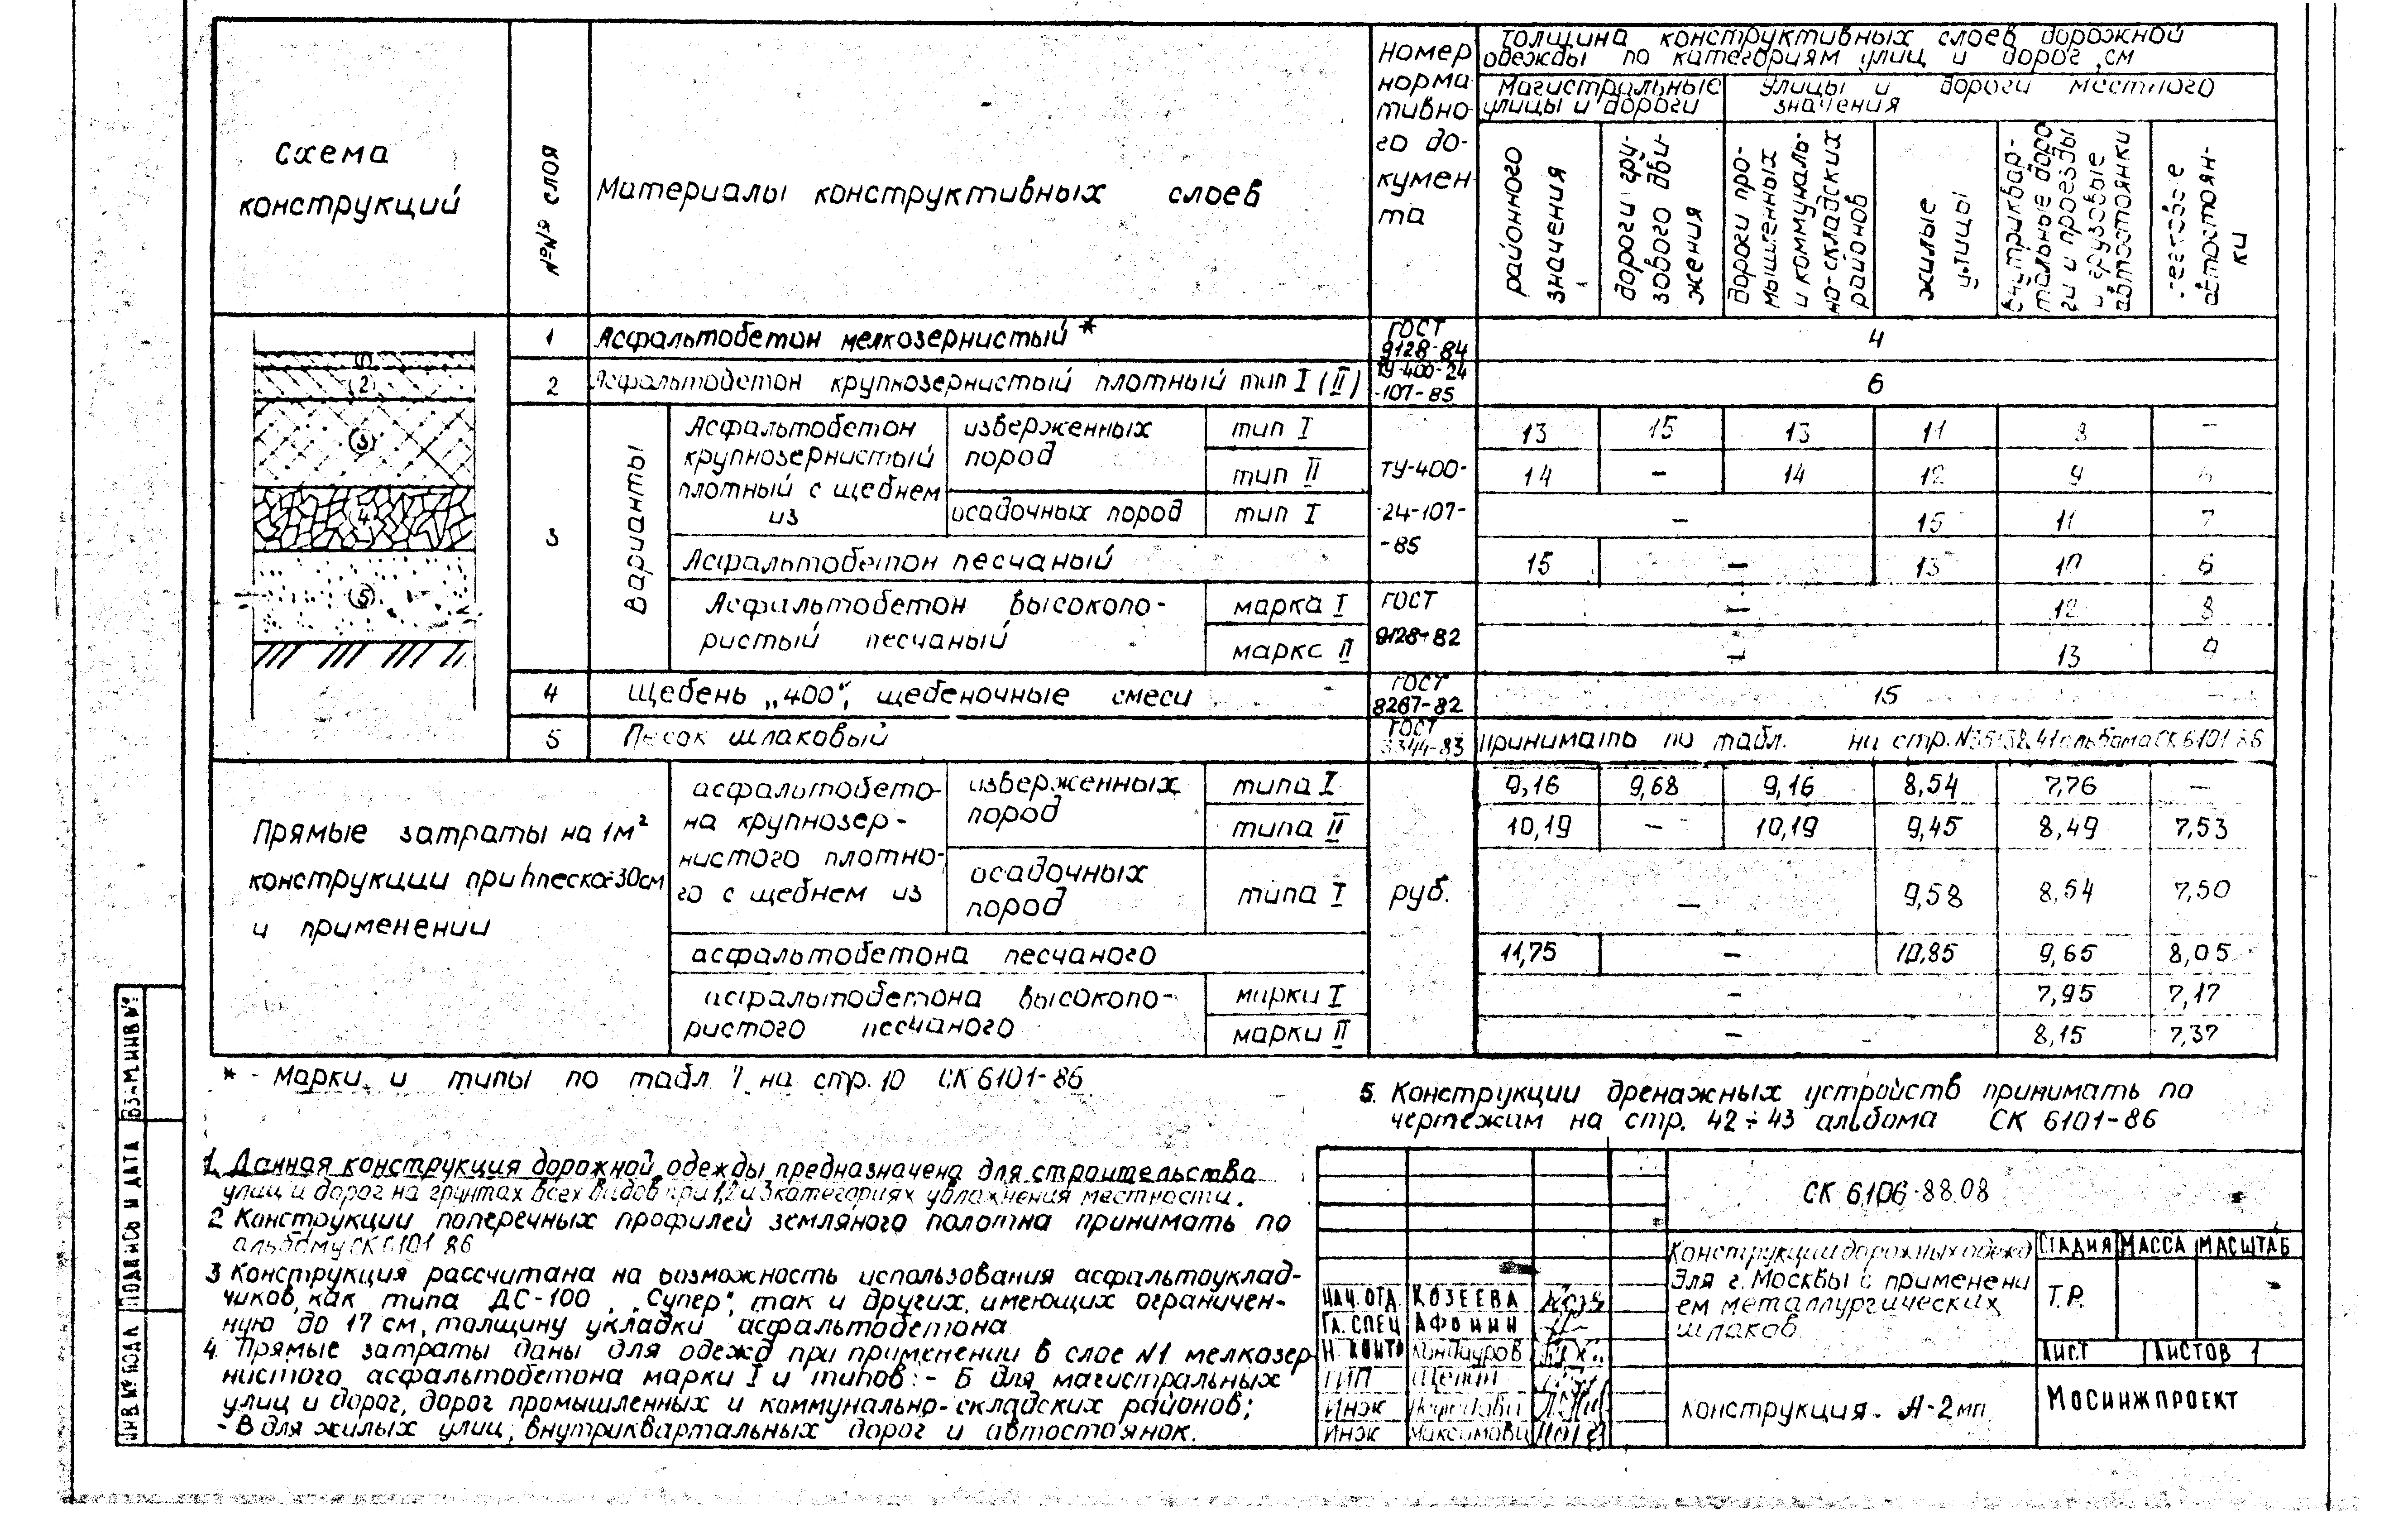 Схема
конструкций
№№ слоя
Материалы конструктивных слоев
Номер
норма
тивно-
го до-
кумен-
та
Толщина конструктивных слоев дорожной
одежды по категориям улиц и дорог, см
Магистральные
улицы и дороги
Улицы и дороги местного
значения
районного
значения
дороги гру-
зового дви-
жения
дороги про-
мышленных
и коммуналь-
но-складских
районов
жилые
улицы
внутриквар-
тальные доро
ги и проезды
и грузовые
автостоянки
легковые
автостоян-
ки
1 Асфальтобетон мелкозернистый * ГОСТ 9128-84 4
2 Асфальтобетон крупнозернистый плотный тип I (II) ТУ-400-24 -107-85 6
3
Варианты
Асфальтобетон
крупнозернистый
плотный с щебнем
из
изверженных
пород
тип I 13 15 13 11 8 -
тип II 14 - 14 12 9
осадочных пород тип I - 15 11 7
ТУ-400-
-24-107-
-85
Асфальтобетон песчаный 15 - 13 10 6
Асфальтобетон высокопо-
ристый песчаный
марка I - 12 8
марка II - 13 9
ГОСТ
9128-82
4 Щебень „400“, щебеночные смеси ГОСТ 8267-82 15
5 Песок шлаковый ГОСТ 3344-83 принимать по табл. на стр. альбома СК 6101-86
Прямые затраты на 1м²
конструкции при hпеска=30см
и применении
асфальтобето-
на крупнозер-
нистого плотно-
го с щебнем из
изверженных
пород
типа I 9,16 9,68 9,16 8,54 7,76 -
типа II 10,19 - 10,19 9,45 8,49 7,53
осадочных
пород
типа I руб. - 9,58 8,54 7,50
асфальтобетона песчаного 11,75 - 10,85 9,65 8,05
асфальтобетона высокопо-
ристого песчаного
марки I - 7,95 7,17
марки II - 8,15 7,37
* - Марки и типы по табл. 1 на стр. 10 СК 6101-86
1. Данная конструкция дорожной одежды предназначена для строительства
улиц и дорог на грунтах всех видов при 1,2 и 3 категориях увлажнения местности.
2 Конструкции поперечных профилей земляного полотна принимать по
альбому СК 6101 86
3 Конструкция рассчитана на возможность использования асфальтоуклад-
чиков, как типа ДС-100, „Супер“, так и других, имеющих ограничен-
ную до 17 см, толщину укладки асфальтобетона
4. Прямые затраты даны для одежд при применении в слое №1 мелкозер
нистого асфальтобетона марки I и типов: - Б для магистральных
улиц и дорог, дорог промышленных и коммунально-складских районов;
- В для жилых улиц, внутриквартальных дорог и автостоянок.
5. Конструкции дренажных устройств принимать по
чертежам на стр. 42÷43 альбома СК 6101-86
СК 6106-88.08
Конструкции дорожных одежд
для г. Москвы с применени
ем металлургических
шлаков
СТАДИЯ МАССА МАСШТАБ
Т.Р.
ЛИСТ ЛИСТОВ 1
Конструкция. А-2мп
МОСИНЖПРОЕКТ
НАЧ.ОТД. КОЗЕЕВА
ГЛ.СПЕЦ АФОНИН
Н.КОНТР
ГИП
Инж
Инж Максимова
ВЗАМ.ИНВ№
ПОДПИСЬ И ДАТА
ИНВ№ПОДЛ
1
2
3
4
5